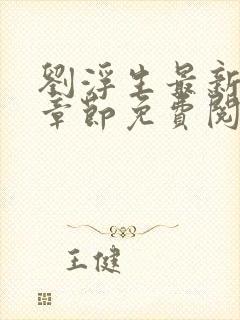 劉浮生最新
章節免費閱
王健